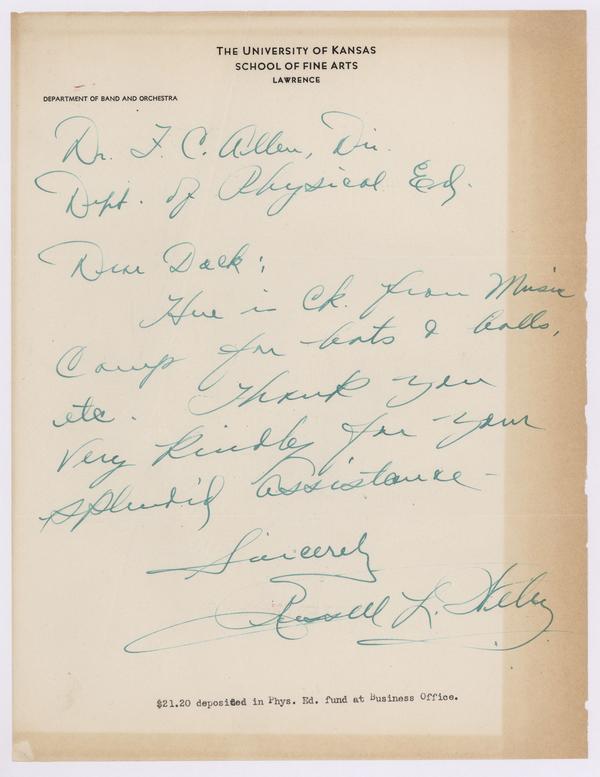 THE UNIVERSITY OF KANSAS
SCHOOL OF FINE ARTS
LAWRENCE
DEPARTMENT OF BAND AND ORCHESTRA
Dr. F. C. Allen, Dir.
Dept. of Physical Ed.
Dear Dock:
Here is Ck. from Music
Camp for bats & balls,
etc. Thank you
very kindly for your
splendid assistance -
Sincerely
Russell L. Wiley
$21.20 deposited in Phys. Ed. fund at Business Office.